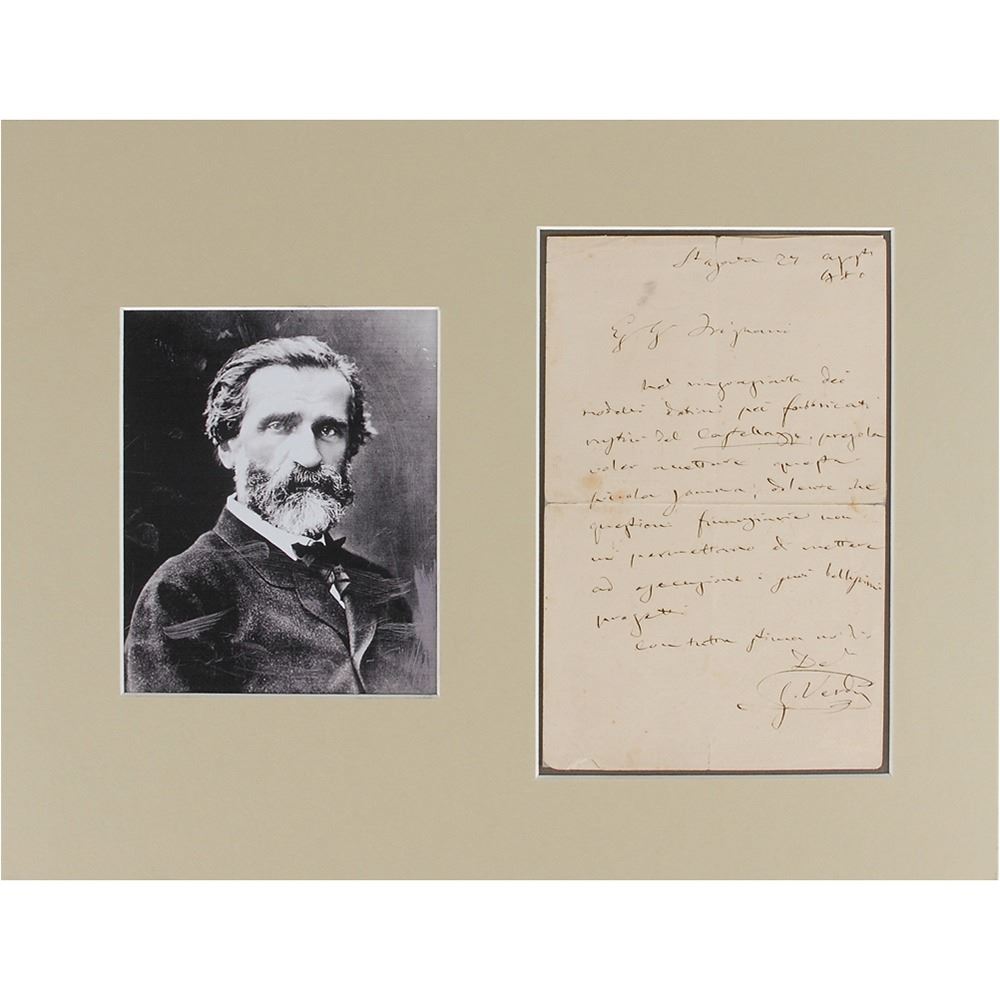 St Agata 27 Agosto
1880
Eg Sg Frignani
Nel ringraziarla dei
modelli datimi pei fabbricati
rustici del Castellazzo, pregola
voler accettare questa
piccola somma; dolente che
questioni finanziarie non
mi permettano di mettere
ad esecuzione i suoi bellissimi
progetti
Con tutta stima mi dico
Dev
G. Verdi